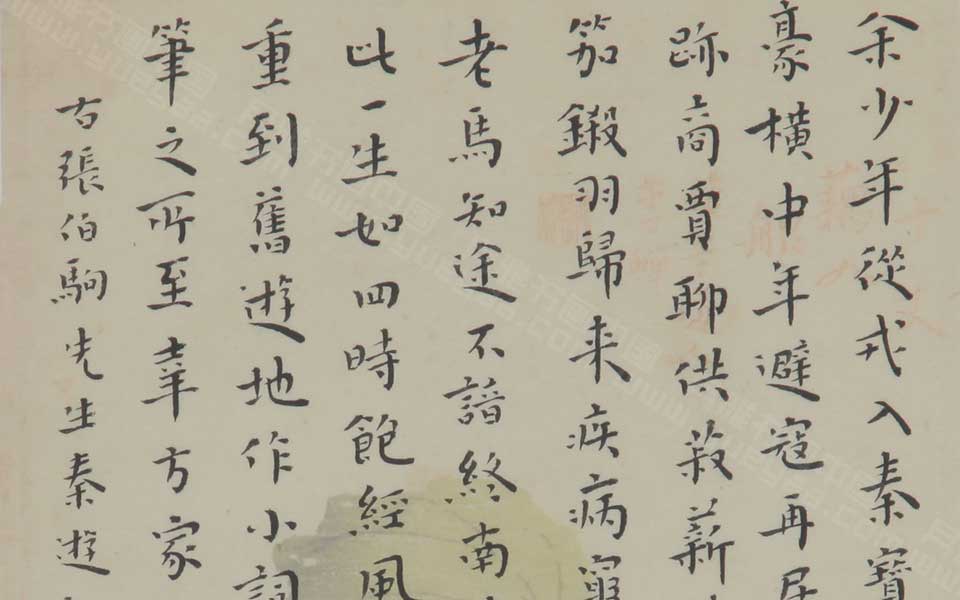 余少年從戎入秦寶
豪橫中年避寇再居
跡商賈聊供菽薪
笳鎩羽歸来疾病窮
老馬知途不諳終南
此一生如四時飽經風
重到舊遊地作小詞
筆之所至幸方家
右張伯駒先生秦遊